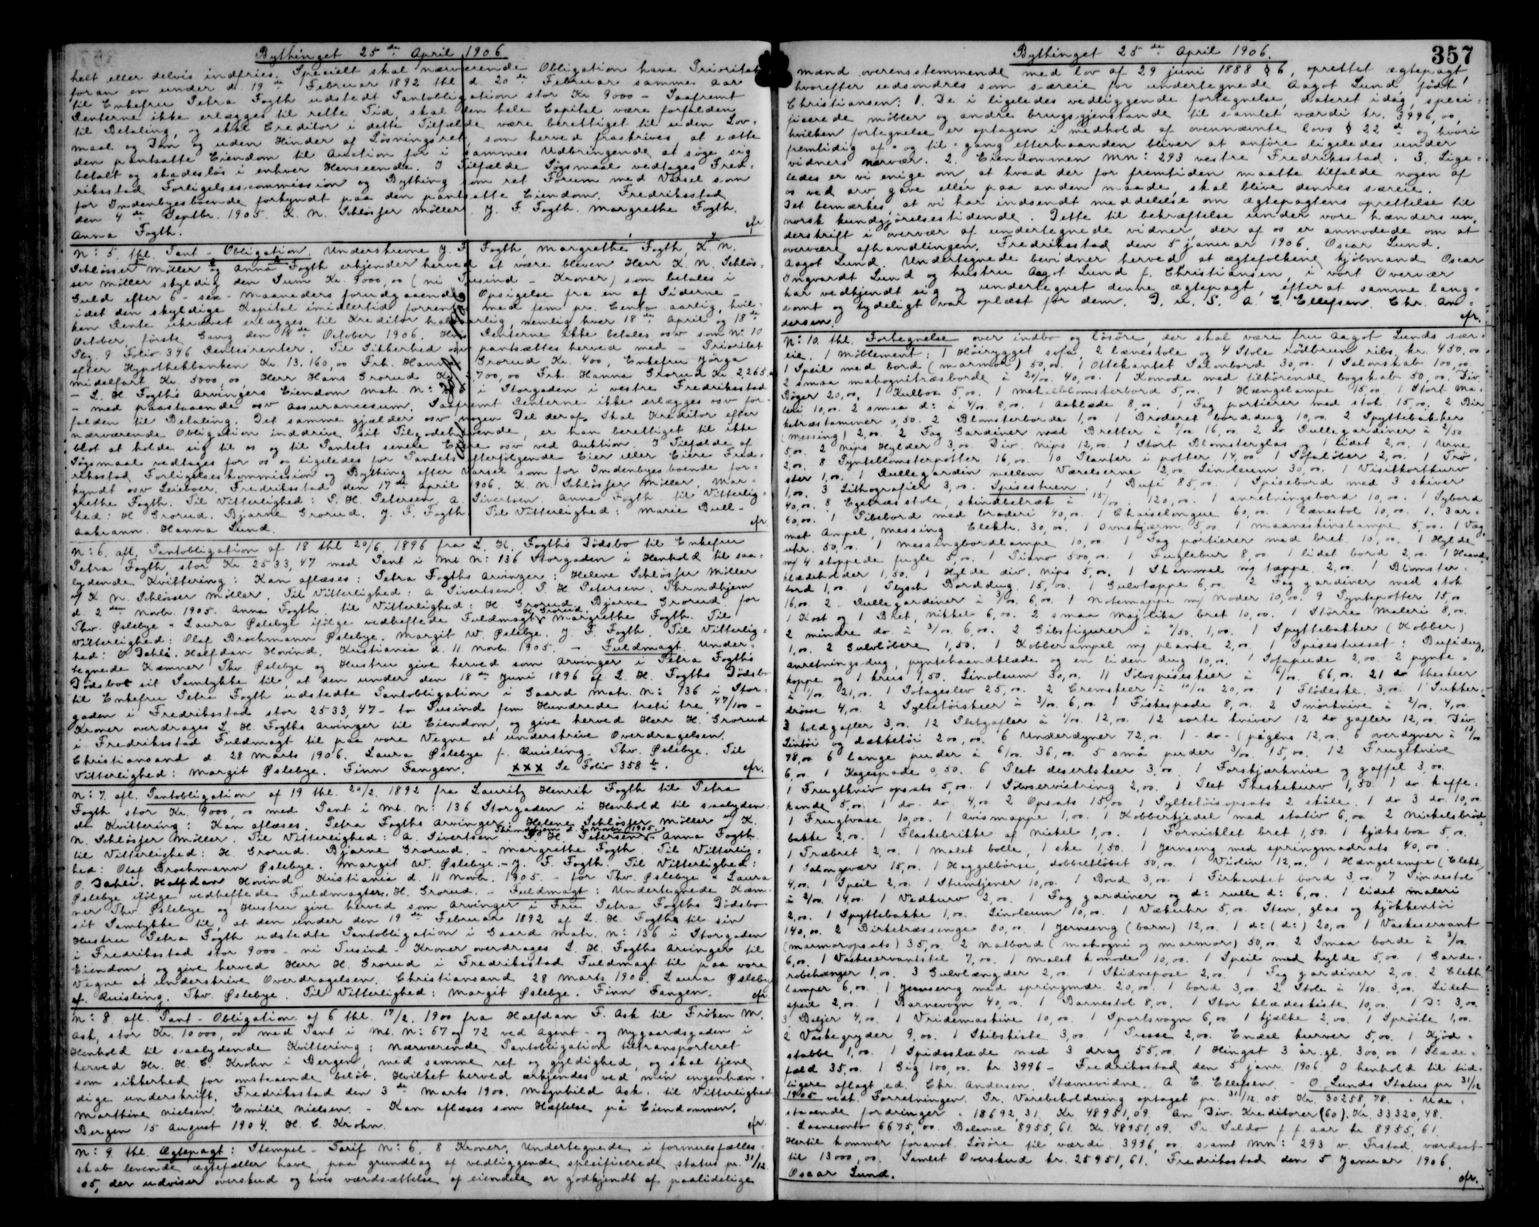 Bythinget 25de April 1906
helt eller delvis indfries. Specielt skal nærværende Obligation have Prioritet
foran en under d 19de Februar 1892 thl d. 20de Februar samme Aar
til Enkefru Petra Fogth udstedt Pantobligation stor Kr 9000 - Saafremt
Renterne ikke erlægges til rette Tid, skal den hele Capital være forfalden
til Betaling, og skal Creditor i dette Tilfælde være berettiget til uden Lov-
maal og Dom og uden Hinder af Løsningsret, som herved fraskrives at sætte
den pantsatte Eiendom til Auction for i sammes Udbringende at søge sig
betalt og skadesløs i enhver Henseende. I Tilfælde Søgsmaal vedtages Fred-
riksstad Forligelsescommission og Bything som ret Forum med Varsel som
for Indenbysboende forkyndt paa den pantsatte Eiendom. Fredriksstad
den 4de Septbr. 1905. K. N. Schlösser Möller. J. F. Fogth. Margrethe Fogth.
Anna Fogth. efr
N: 5. thl. Pant-Obligation. Underskrevne J F Fogth, Margrethe Fogth K. N.
Schlösser Möller og Anna Fogth erkjender herved at være bleven Herr K. N. Schlös-
ser Möller skyldig den Sum Kr. 9000,00 (ni Tusind - Kroner) som betales i
Guld efter 6 - sex - Maaneders forudgaaende Opsigelse fra en af Siderne -
idet den skyldige Kapital imidlertid forrentes med fem pr. Cento aarlig, hvil-
ken Rente ukrævet erlægges til Kreditor halvaarlig nemlig hver 18de April og 18de
October, første Gang den 18de October 1906. Hvis Renterne ikke betales osv som N: 10
Pbg. 9 Folio 396 Rentesrenter. Til Sikkerhed osv pantsættes herved med - Prioritet
efter Hypothekbanken Kr. 13.160,00 Frk. Hanna Grorud Kr. 400, Enkefru Jörga
Midelfart Kr. 5000,00, Herr Hans Grorud Kr. 2700,00 Frk. Hanna Grorud Kr. 2265.
- L. H. Fogths Arvingers Eiendom Mat. N: 136 i Storgaden i vestre Fredriksstad
- med paastaaende osv Assurancesum. Saafremt Renterne ikke erlægges osv for-
falden til Betaling. Det samme gjælder osv nogen Del deraf. Skal Kreditor efter
nærværende Obligation inddrive sit Tilgodehavende, er han berettiget til ikke
blot at holde sig til os og til Pantets senere Eiere osv ved Auktion. I Tilfælde af
Søgsmaal vedtages for os og ligeledes for Pantets efterfølgende Eier eller Eiere Fred-
riksstad Forligelseskommission og Bything efter Varsel som for Indenbysboende for-
kyndt osv Leiebøer. Fredriksstad den 17de April 1906. K. N. Schlösser Möller. Mar-
grethe Fogth. Til Vitterlighed: P. H. Petersen, A Sivertsen. Anna Fogth til Vitterlig-
hed: H Grorud, Bjarne Grorud. J. F. Fogth. Til Vitterlighed: Marie Bull-
Aakrann. Hanna Lund. efr
N: 6. afl. Pantobligation af 18 thl 20/6 1896 fra L. H. Fogths Dödsbo til Enkefru
Petra Fogth stor Kr 2533,47 med Pant i Mt. N: 136 Storgaden i Henhold til saa-
lydende Kvittering: Kan aflæses: Petra Fogths Arvinger: Helene Schlösser Möller
K N. Schlösser Möller. Til Vitterlighed: A Sivertsen P H Petersen. Throndhjem
d. 2den Novbr. 1905. Anna Fogth. til Vitterlighed: H Grorud, Bjarne Grorud, for
Thv. Øslebye - Laura Øslebye ifølge vedheftede Fuldmagt Grorud. Margrethe Fogth. Til
Vitterlighed: Olaf Brochmann Øslebye. Margit W. Øslebye. J. F. Fogth. Til Vitterlig-
hed: O Dahli. Halfdan Hovind. Kristiania d. 11 Novb. 1905. - Fuldmagt. Under-
tegnede Kæmner Thv. Øslebye og Hustru give herved som Arvinger i Petra Fogths
Dödsbo sit Samtykke til at den under den 18de Juni 1896 af L. H. Fogths Dödsbo
til Enkefru Petra Fogth udstedte Pantobligation i Gaard Matr. N: 136 i Stor-
gaden i Fredriksstad stor 2533,47 - to Tusind fem Hundrede treti tre 47/100 -
Kroner overdrages L H. Fogths Arvinger til Eiendom, og give herved Herr H. Grorud
i Fredriksstad Fuldmagt til paa vore Vegne at underskrive Overdragelsen.
Christiansand d. 28 Marts 1906. Laura Øslebye f. Quisling. Thv. Øslebye. Til
Vitterlighed: Margit Øslebye. Finn Fangen. xxx Se Folio 358 b. efr.
N: 7. afl. Pantobligation af 19 thl. 20/2. 1892 fra Lauritz Henrik Fogth til Petra
Fogth stor Kr. 9000,00 med Pant i Mt. N: 136 Storgaden i Henhold til saalyden-
de Kvittering: Kan aflæses. Petra Fogths Arvinger: Helene Schlösser Möller og K.
N. Schlösser Möller. Til Vitterlighed: A Sivertsen, P H Petersen. Anna Fogth.
til Vitterlighed: H. Grorud, Bjarne Grorud. - Margrethe Fogth. Til Vitterlig-
hed: Olaf Brochmann Øslebye. Margit W. Øslebye. - J. F. Fogth. Til Vitterlighed:
O. Dahli. Halfdan Hovind. Kristiania d. 11 Novb. 1905. - for Thv. Øslebye - Laura
Øslebye ifølge vedheftede Fuldmagter, H. Grorud. - Fuldmagt: Undertegnede Kæm-
ner Thv. Øslebye og Hustru give herved som Arvinger i Fru Petra Fogths Dödsbo
sit Samtykke til, at den under den 19de Februar 1892 af L. H. Fogth til sin
Hustru Petra Fogth udstedte Pantobligation i Gaard Matr. N: 136 i Storgaden
i Fredriksstad stor 9000 - ni Tusind - Kroner overdrages L. H. Fogths Arvinger til
Eiendom, og give herved Herr H. Grorud i Fredriksstad Fuldmagt til paa vore
Vegne at underskrive Overdragelsen. Christiansand 28 Marts 1906. Laura Øslebye
f. Quisling. Thv. Øslebye. Til Vitterlighed: Margit Øslebye. Finn Fangen. efr
N: 8 afl. Pant-Obligation af 6 thl. 17/2. 1900 fra Halfdan F. Ask til Frøken M.
Ask, stor Kr. 10000,00 med Pant i Mt. N: 67 og 72 ved Agent- og Nygaardsgaden i
Henhold til saalydende Kvittering: Nærværende Pantobligation tiltransporteret
herved Hr. H. C. Krohn i Bergen med samme ret og gyldighed, og skal tjene
som sikkerhed for omstaaende beløb. Hvilket herved erkjendes ved min egenhæn-
dige underskrift. Fredriksstad den 3de Marts 1900. Magnhild Ask. til Vitterlighed
Marthine Nielsen. Emilie Nielsen. - Kan aflæses som Hæftelse på Eiendommen.
Bergen 15 August 1904. H. C. Krohn. efr.
N: 9 thl. Ægtepagt: Stempel-Tarif N: 6. 8 Kroner. Undertegnede i formuesfælles-
skab levende ægtefæller have, paa grundlag af vedliggende specificerede status pr. 31/12
05, der udviser overskud og hvis værdsættelse af eiendele er godkjendt af paalidelige
Bythinget 25de April 1906.
357
mænd overensstemmende med lov af 29 juni 1888 § 6, oprettet ægtepagt,
hvorefter udsondres som særeie for undertegnede Aagot Lund, født
Christiansen: 1. De i ligeledes vedliggende fortegnelse, dateret idag, speci-
ficerede möbler og andre brugsgjenstande til samlet værdi kr. 3996,00,
hvilken fortegnelse er optagen i medhold af ovennævnte lovs § 22 og hvori
fremtidig af- og til-gang efterhaanden bliver at anføre ligeledes under
vidners nærvær. 2. Eiendommen Mn: 293 vestre Fredriksstad. 3. Lige-
ledes er vi enige om, at hvad der for fremtiden maatte tilfalde nogen af
os ved arv, gave eller paa anden maade, skal blive dennes særeie.
Det bemærkes, at vi har indsendt meddelelse om ægtepagtens oprettelse til
norsk kundgjörelsestidende. Dette til bekræftelse under vore hænders un-
derskrift i overvær af undertegnede vidner der af os er anmodede om at
overvære afhandlingen. Fredriksstad den 5 januar 1906. Oscar Lund.
Aagot Lund. Undertegnede bevidner herved at ægtefolkene kjöbmand Oscar
Ingvardt Lund og hustru Aagot Lund f. Christiansen, i vort Overvær
har vedkjendt sig og underlegnet denne ægtepagt, efterat samme lang-
somt og tydeligt var oplæst for dem. D. u. S. A E. Ellefsen. Chr. An-
dersen. efr.
N: 10 thl. Fortegnelse over indbo og lösöre, der skal være fru Aagot Lunds sær-
eie. 1 Möblement: 1 Höirygget sofa, 2 lænestole og 4 Stole rödbrun ribs, kr. 450,00
1 Speil med bord (marmor) 50,00 1 Ottekantet Salonbord 30,00. 1 Salonskab 100,00
2 smaa mahognitræsborde à 20/00 40,00. 1 Komode med tilhörende bogskab 50,00 Div.
Bøger 20,00. 1 Rulbox 5,00. 1 met. blomsterbord 5,00. 1 Hængelampe 15,00 1 Stort Ma-
leri 10,00. 2 smaa d: à 4/00 8,00. 1 Askläde 8,00. 1 Fag portierer med stok 15,00, 2 Bir-
ketræstammer 0,50. 2 Blomsterborde 1,00 1 Broderet borddug 10,00. 2 Spyttebakker
(messing) 2,00. 2 Fag Gardiner med Bretter à 8/00 16,00. 2 do Rullegardiner à 2/50.
5,00 2 nips Hylder 3,00. Div. nips 12,00. 1 Stort Blomsterglas og 1 lidet 2,00. 1 Urne
2,00. 8 Pynteblomsterpotter 16,00. 10 Planter i potter 14,00 1 Tæpelöber 2,00. 1 Trö-
ster 1,00. 1 Rullegardin mellem Værelserne 2,00. Linoleum 30,00. 1 Visitkortkurv
1,00. 3 Lithografier 3,00. Spisestuen: 1 Bufé 85,00. 1 Spisebord med 3 skiver
40,00. 8 Egetræsstole, skindtræk à 15/00 120,00. 1 anretningsbord 10,00. 1 Sybord
60,00. 1 Pibebord med broderi 40,00. 1 Chaiselongue 60,00. 1 Lænestol 10,00. 1. 3 ar-
met Ampel, messing Elektr. 30,00. 1 Ovnskjærm 5,00. 1 maaneskinslampe 5,00. 1 Væg-
uhr. 50,00. 1 messingbordlampe 10,00. 1 Fag portierer med bret. 10,00. 1 Hylde
m/ 4 stoppede fugle 5,00. 1 Piano 500,00. 1 Fuglebur 8,00. 1 lidet bord 2,00. 1 Haand-
klædeholder 1,50. 1 Hylde div. nips 5,00. 1 Skammel m/ tæppe 2,00. 1 Blomster-
bord 1,00. 1 Plysch Borddug 15,00. 1 Gulvtæppe 6,00. 2 Fag gardiner med stok
16,00. 2 Rullegardiner à 3/00 6,00. 1 notemappe m/ Noder 10,00. 9 Syntepotter 15,00
1 Kost og 1 Bret, nikkel 6,00. 2 smaa majolika bret 10,00. 1 Större Maleri 8,00.
2 mindre do à 3/00 6,00. 2 Gibsfigurer à -/50. 1,00. 1 Spyttebakker (Kobber)
1,00. 2 Gulvløbere 1,50. 1 Kobberampel m/ plante 2,00. 1 Spisestuesæt: Bufédug,
anretningsdug, pyntehaandklæde og en liden dug 10,00. 1 Sofapude 2,00. 2 pynte-
koppe og 1 krus 1,50. Linoleum 30,00. 11 Sölvspiseskeer à 6/00. 66,00. 21 do theskeer
à 1/00. 21,00. 1 Potageslev 25,00. 2 Grømskeer à 10/00 20,00. 1 Flödeske. 3,00. 1 Sukker-
dröse 4,00. 2 Syltetöiskeer à 3/00 6,00. 1 Fiskespade 8,00. 2 Smörknive à 2/00. 4,00.
3 koldgafler 3,00. 12 Pletgafler à 1/00. 12,00. 12 sorte kniver 12 do gafler 12,00. Div.
Lintöi og dækketöi 200,00. 6 Underdyner 72,00. 1 -do- (pigens) 12,00. 6 overdyner à 13/00
78,00. 6 lange puder à 6/00. 36,00. 5 små puder 3/00 15,00. 12 Frugtknive
6,00. 1 Kagespade 0,50. 6 Plet desertskeer 3,00. 1 Forskjærkniv og gaffel 3,00.
1 Frugtkniv opsats 5,00. 1 Sölvserviettring 2,00. 1 Plet Theskekurv 1,50. 1 do kaffe-
kande 5,00. 1 do. do. 4,00. 2 Opsats 15,00. 1 Syltetöisopsats 2 skåle. 1 do 3 do 10,00.
1 Frugtvase 10,00. 1 Avismappe 1,00. 1 Kobberkjedel med stativ 6,00. 2 Nickelsbröd-
bakke 2,00. 1 Flaskebrikke af nickel 1,00. 1 Fornicklet bret 1,50. 1 kjæksbox 5,00.
1 Træbret 2,00. 1 malet bolle, 1 ske 1,50. 1 Jernseng med springmadrats 40,00.
1 Salongevær 15,00. 1 Haggelbörse, dobbeltløbet 50,00. 1 Violin 12,00. 1 Hængelampe (Elekt.)
4,00. 1 Speil 2,00. 1 Stumtjener 10,00. 1 Bord 3,00. 1 Firkantet bord 3,00. 7 Pindestole
à 2/00. 14,00. 1 Vedkurv 2,00. 1 Fag gardiner og d: rulle d: 6,00. 1 lidet maleri
2,00. 1 Spyttebakke 1,00. Linoleum 10,00. 1 Vækkuhr 5,00. Sten, glas og kjökkentöi
140,00. 2 Birketræssenge 80,00. 1 Jernseng (barn) 12,00. 1 d: (d:) 20,00. 1 Vaskeservant
(marmoropsats) 35,00. 2 natbord (mahogni og marmor) 50,00. 2 Smaa borde à 3/00.
6,00. 1 Vaskeservantstel 7,00. 1 malet komode 10,00. 1 Speil med hylde 5,00. 1 Garde-
robehænger 1,00. 3 Gulvlængder 2,00. 1 Skidnepose 2,00. 1 Fag gardiner 2,00. 2 Elekt.
lamper 6,00. 1 Jernseng med springmdr. 20,00. 1 bord 3,00. 2 Stole à 1/50. 3,00. Lidet
speil 2,00. 1 Barnevogn 40,00. 1 Barnestol 8,00. 1 Stor klædeskiste 10,00. 1 D: 3,00.
3 Beljer 4,00. 1 Vridemaskine 10,00. 1 Sportsvogn 6,00. 1 kjelke 2,00. 1 Spröite 1,00.
2 Vaskegryder 9,00. 1 Skibskiste 3,00 1 Presse 2,00. Endel kurver 5,00. 1 Kjöd-
stabbe 1,00. 1 Spidsslæde med 3 drag 55,00. 1 Hingst 3 år.gl. 300,00. 1 Slade-
fæld 35,00. 1 Gig 100,00. kr 3996 - Fredriksstad den 5 janr 1906. I henhold til tid-
ligere aflagt ed, Chr. Andersen, Stævnevidne. A E. Ellefsen. - O Lunds Status pr 31/12
1905 vedk. Forretningen. Pr. Varebeholdning optaget pr. 31/12.05 Kr. 30258,78. - Ude-
staaende fordringer - 18692.31. Kr 48951,09. An Div. Kreditorer (60). Kr. 33320,48.
- Laaneconto 6675,00. Balance 8955,61. Kr. 48951,09. Pr. Saldo f f aar kr 8955,61.
Hertil kommer foranst. Lösöre til værdi 3996,00, samt Mn: 293 v. Frstad værdsat
til 13000,00. Samlet Overskud kr. 25951,61. Fredriksstad den 5 januar 1906.
Oscar Lund. efr.